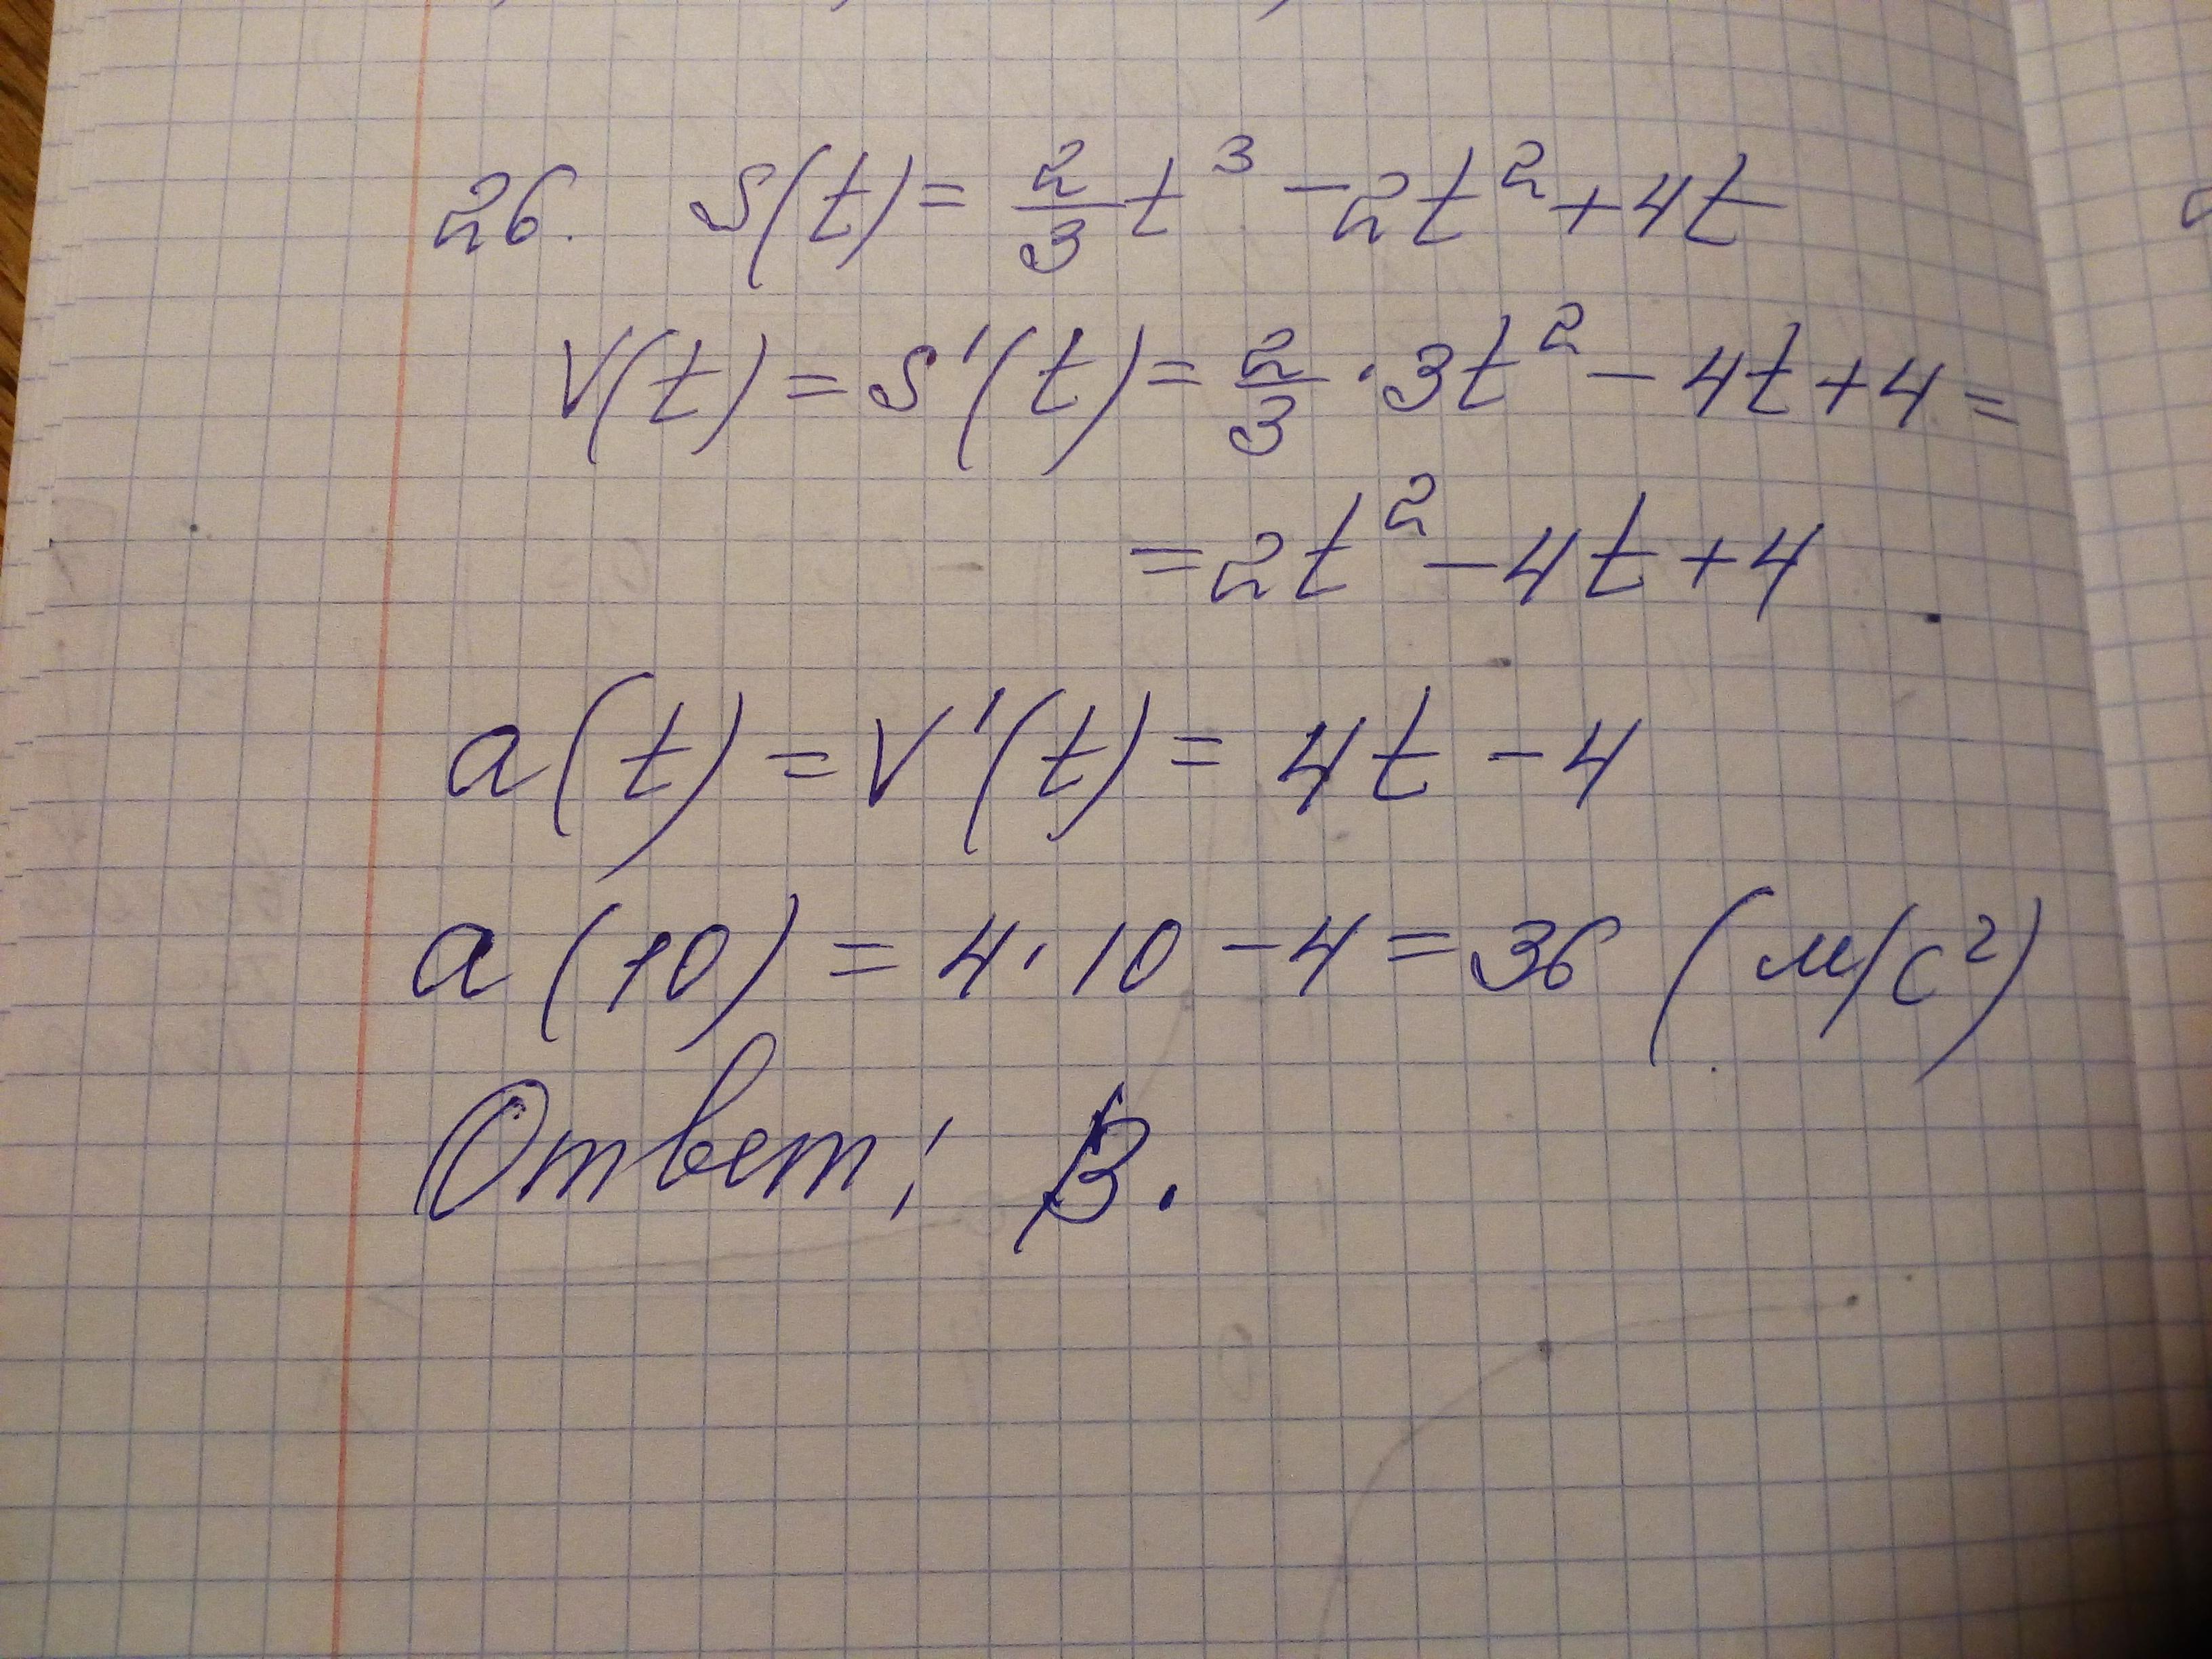 26. S(t) = 2/3 t³ - 2t² + 4t
V(t) = S'(t) = 2/3 · 3t² - 4t + 4 =
= 2t² - 4t + 4
a(t) = V'(t) = 4t - 4
a(10) = 4 · 10 - 4 = 36 (м/с²)
Ответ: В.